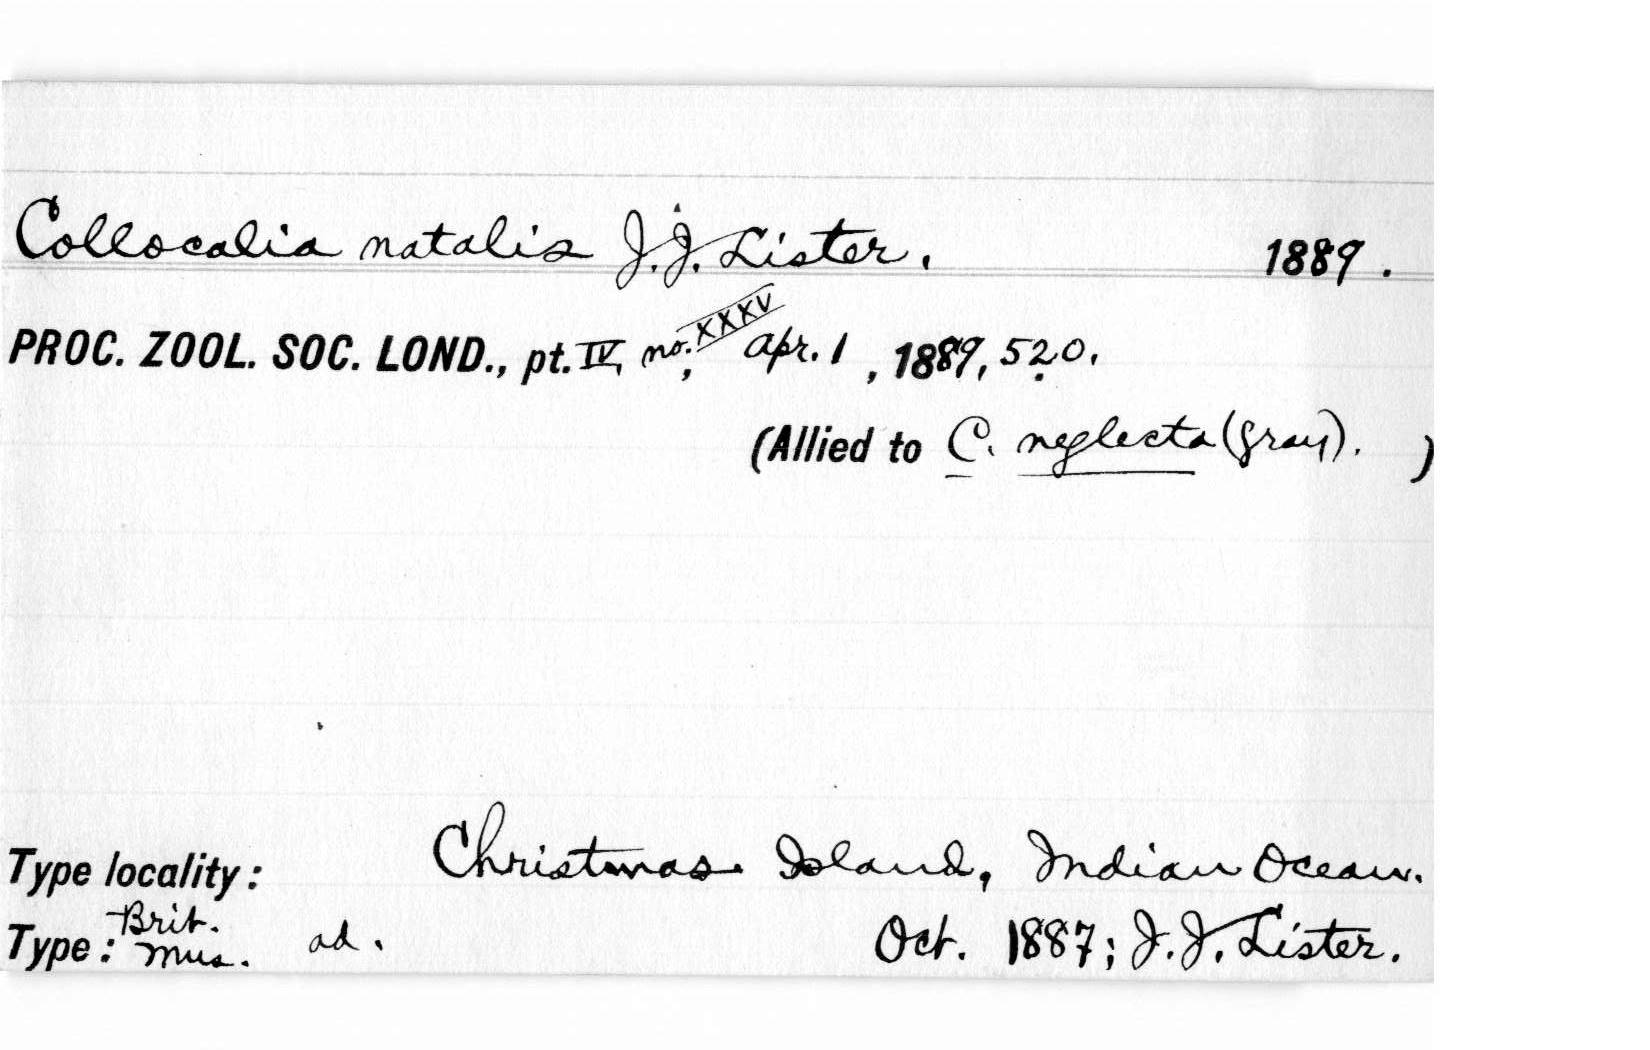 Collocalia natalis J. J. Lister. 1889.
PROC. ZOOL. SOC. LOND., pt. IV, no. XXXV, Apr. 1, 1889, 520.
(Allied to C. neglecta (Gray). )
Type locality: Christmas Island, Indian Ocean.
Type: Brit. Mus. ad. Oct. 1887; J. J. Lister.